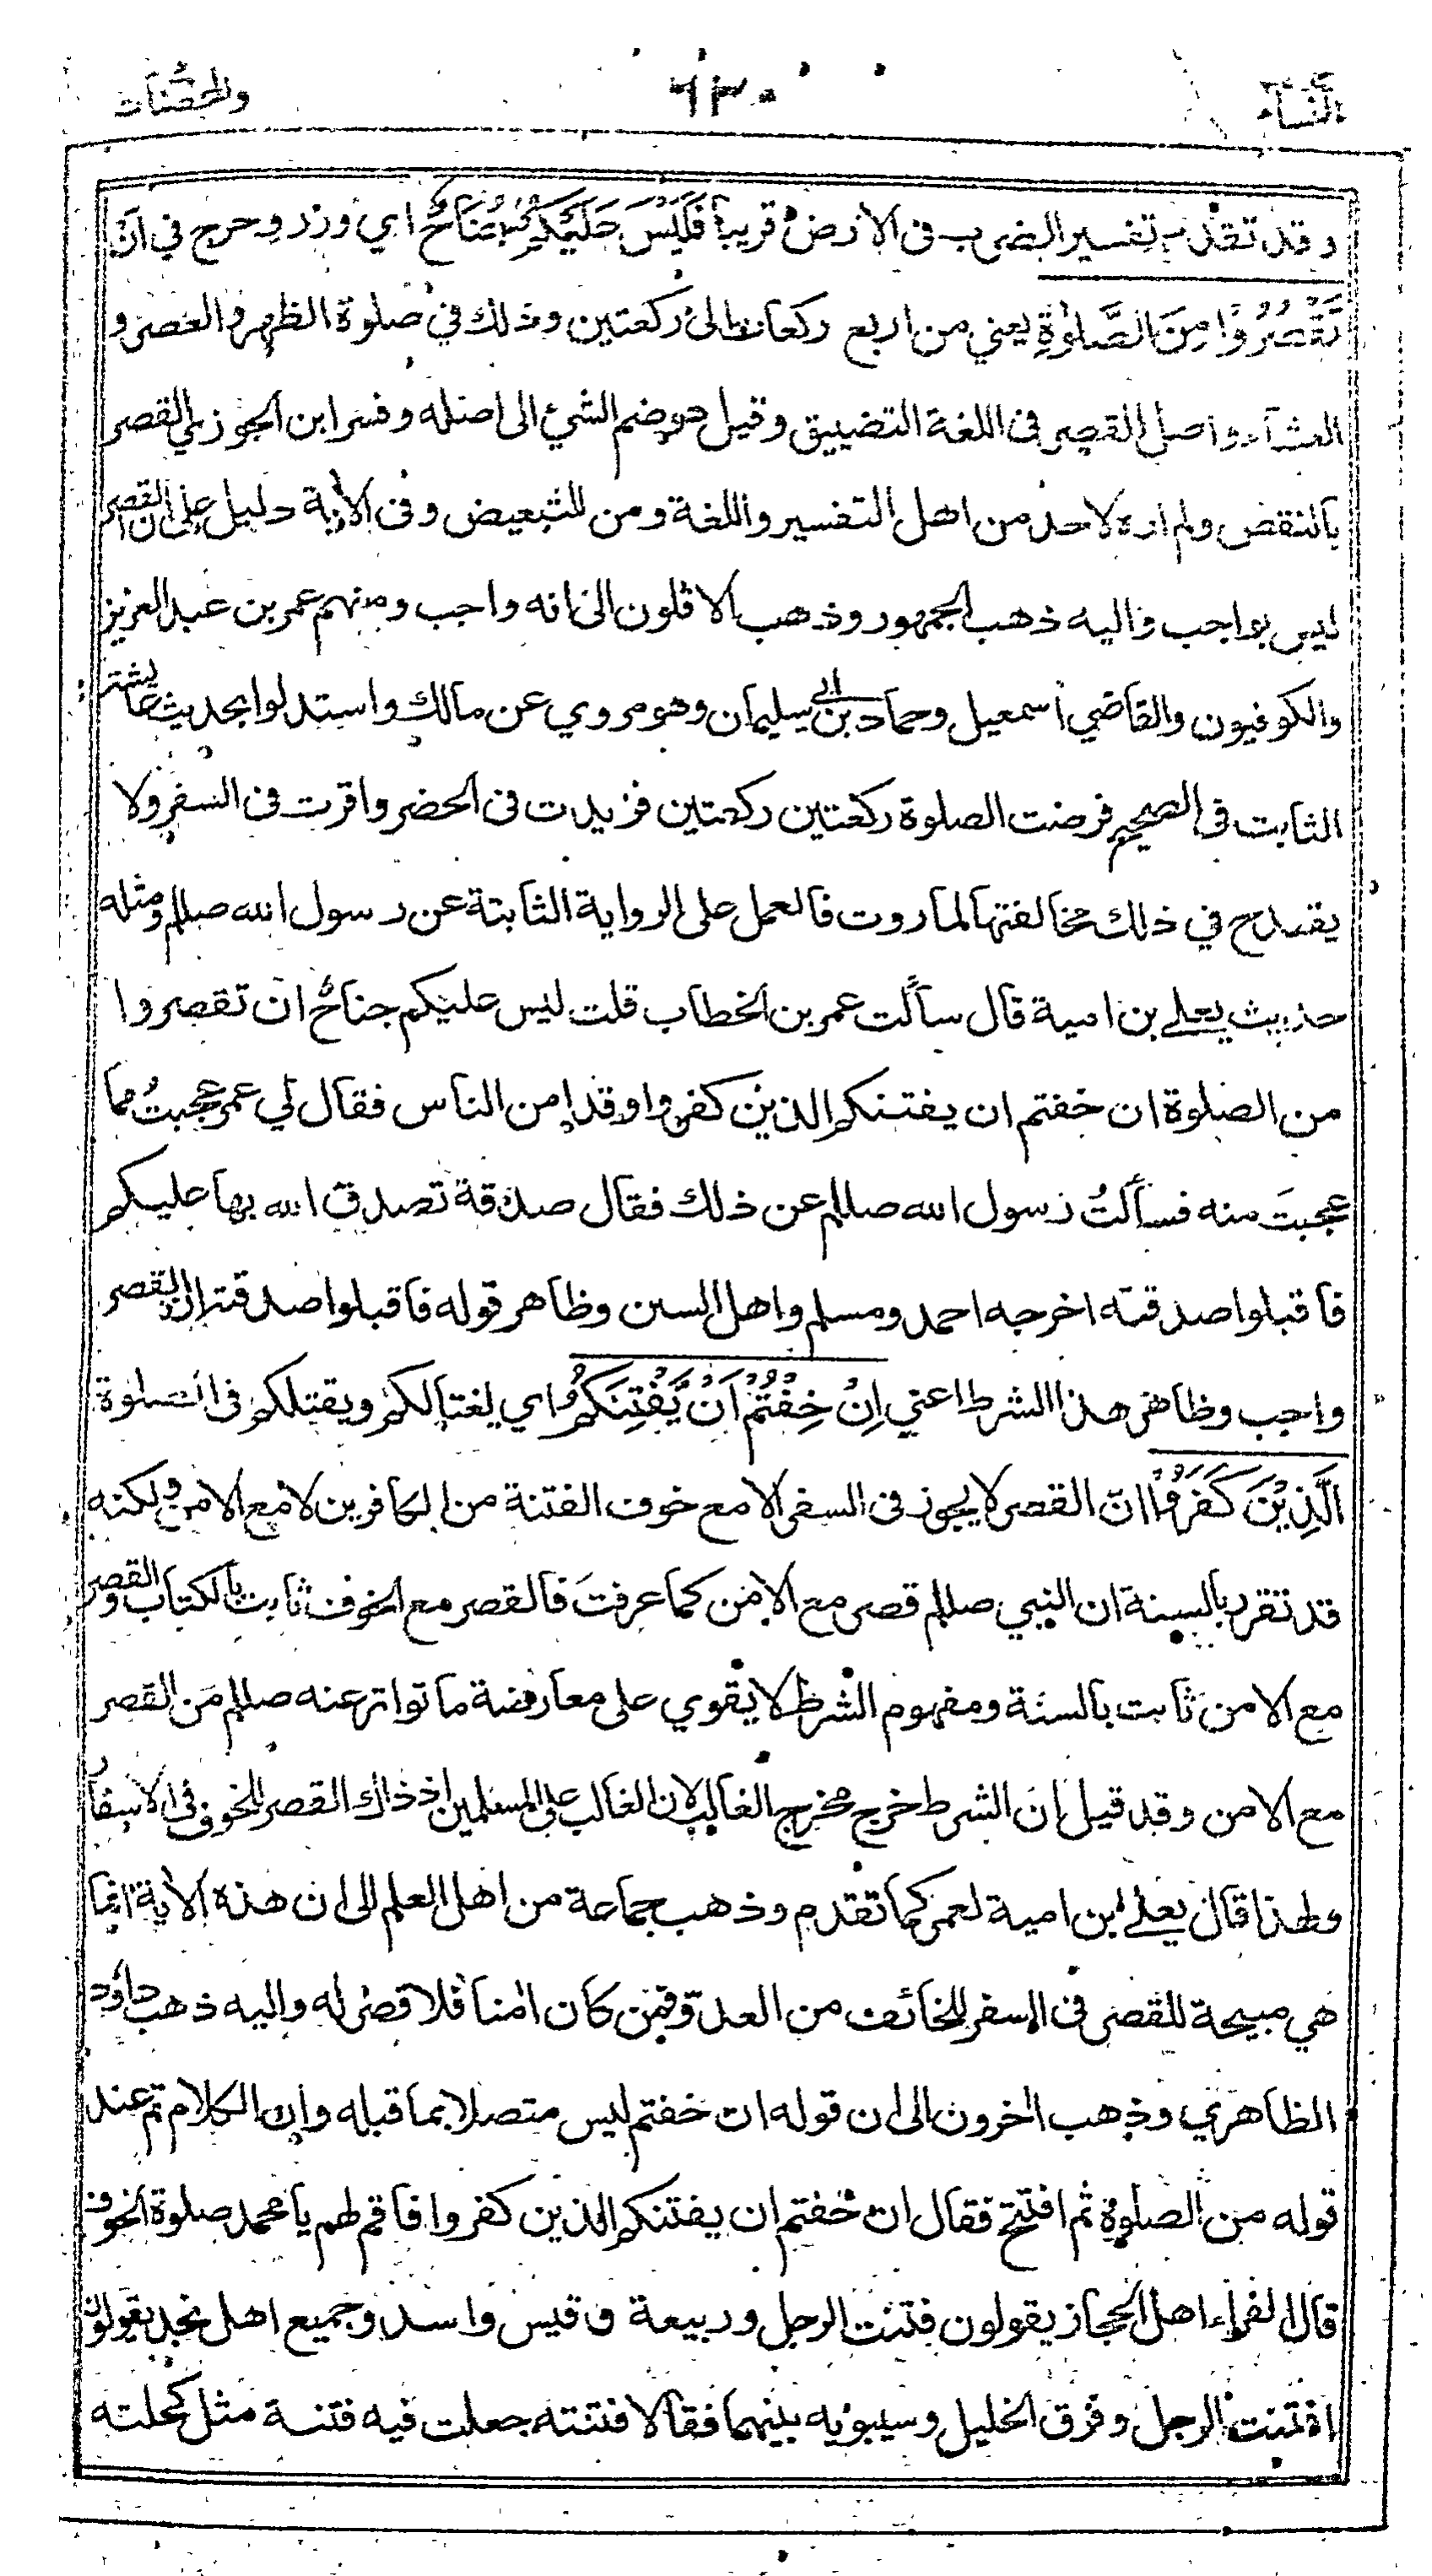 النسآء ٦٣٠ والمحصنات
وقد تقدم تفسير الضرب فى الارض قريبا فَلَيْسَ عَلَيْكُمْ جُنَاحٌ اي وزر و حرج في اَنْ
تَقْصُرُوْا مِنَ الصَّلٰوةِ يعني من اربع ركعات الى ركعتين وذلك في صلوة الظهر والعصر و
العشآء واصل القصر فى اللغة التضييق وقيل هو ضم الشيء الى اصله وفسر ابن الجوزي القصر
بالنقص ولم اره لاحد من اهل التفسير واللغة ومن للتبعيض وفى الأية دليل على ان القصر
ليس بواجب واليه ذهب الجمهور وذهب الاقلون الى انه واجب ومنهم عمر بن عبد العزيز
والكوفيون والقاضي اسمعيل وحماد بن ابي سليمان وهو مروي عن مالك واستدلوا بحديث عايشة
الثابت فى الصحيح فرضت الصلوة ركعتين ركعتين فزيدت فى الحضر واقرت فى السفر ولا
يقدح في ذلك مخالفتها لما روت فالعمل على الرواية الثابتة عن رسول الله صللم ومثله
حديث يعلى بن امية قال سألت عمر بن الخطاب قلت ليس عليكم جناحٌ ان تقصروا
من الصلوة ان خفتم ان يفتنكم الذين كفروا وقد امن الناس فقال لي عمر عجبتُ مما
عجبتَ منه فسألتُ رسول الله صللم عن ذلك فقال صدقة تصدق الله بها عليكم
فاقبلوا صدقته اخرجه احمد ومسلم واهل السنن وظاهر قوله فاقبلوا صدقته ان القصر
واجب وظاهر هذا الشرط اعني اِنْ خِفْتُمْ اَنْ يَّفْتِنَكُمُ اي يغتالكم ويقتلكم فى الصلوة
الَّذِيْنَ كَفَرُوْا ان القصر لا يجوز فى السفر الا مع خوف الفتنة من الكافرين لا مع الامن ولكنه
قد تقرر بالسنة ان النبي صللم قصر مع الامن كما عرفتَ فالقصر مع الخوف ثابت بالكتاب والقصر
مع الامن ثابت بالسنة ومفهوم الشرط لا يقوي على معارضة ما تواتر عنه صللم من القصر
مع الامن وقد قيل ان الشرط خرج مخرج الغالب لان الغالب على المسلمين اذ ذاك القصر للخوف فى الاسفار
ولهذا قال يعلى بن امية لعمر كما تقدم وذهب جماعة من اهل العلم الى ان هذه الأية انما
هي مبيحة للقصر فى السفر للخائف من العدو فمن كان اٰمنا فلا قصر له واليه ذهب داؤد
الظاهري وذهب اخرون الى ان قوله ان خفتم ليس متصلا بما قبله وان الكلام تم عند
قوله من الصلوة ثم افتتح فقال ان خفتم ان يفتنكم الذين كفروا فاقم لهم يا محمد صلوة الخوف
قال الفراء اهل الحجاز يقولون فتنت الرجل وربيعة و قيس واسد وجميع اهل نجد يقولون
افتنت الرجل وفرق الخليل وسيبويه بينهما فقالا فتنته جعلت فيه فتنة مثل كحلته